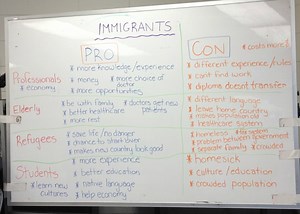 IMMIGRANTS
PRO
CON
* costs more $
Professionals
* economy
* more knowledge/experience
* money
* more choice of doctor
* more opportunities
* different experience/rules
* cant find work
* diploma doesnt transfer
Elderly
* be with family
* doctors get new patients
* better healthcare
* more rest
* different language
* leave home country
* makes population old
* healthcare system
Refugees
* save life/no danger
* chance to start over
* makes new country look good
* homeless
* problem between government
* separate family
* crowded
Students
* learn new cultures
* more experience
* better education
* native language
* help economy
* homesick
* culture/education
* crowded population